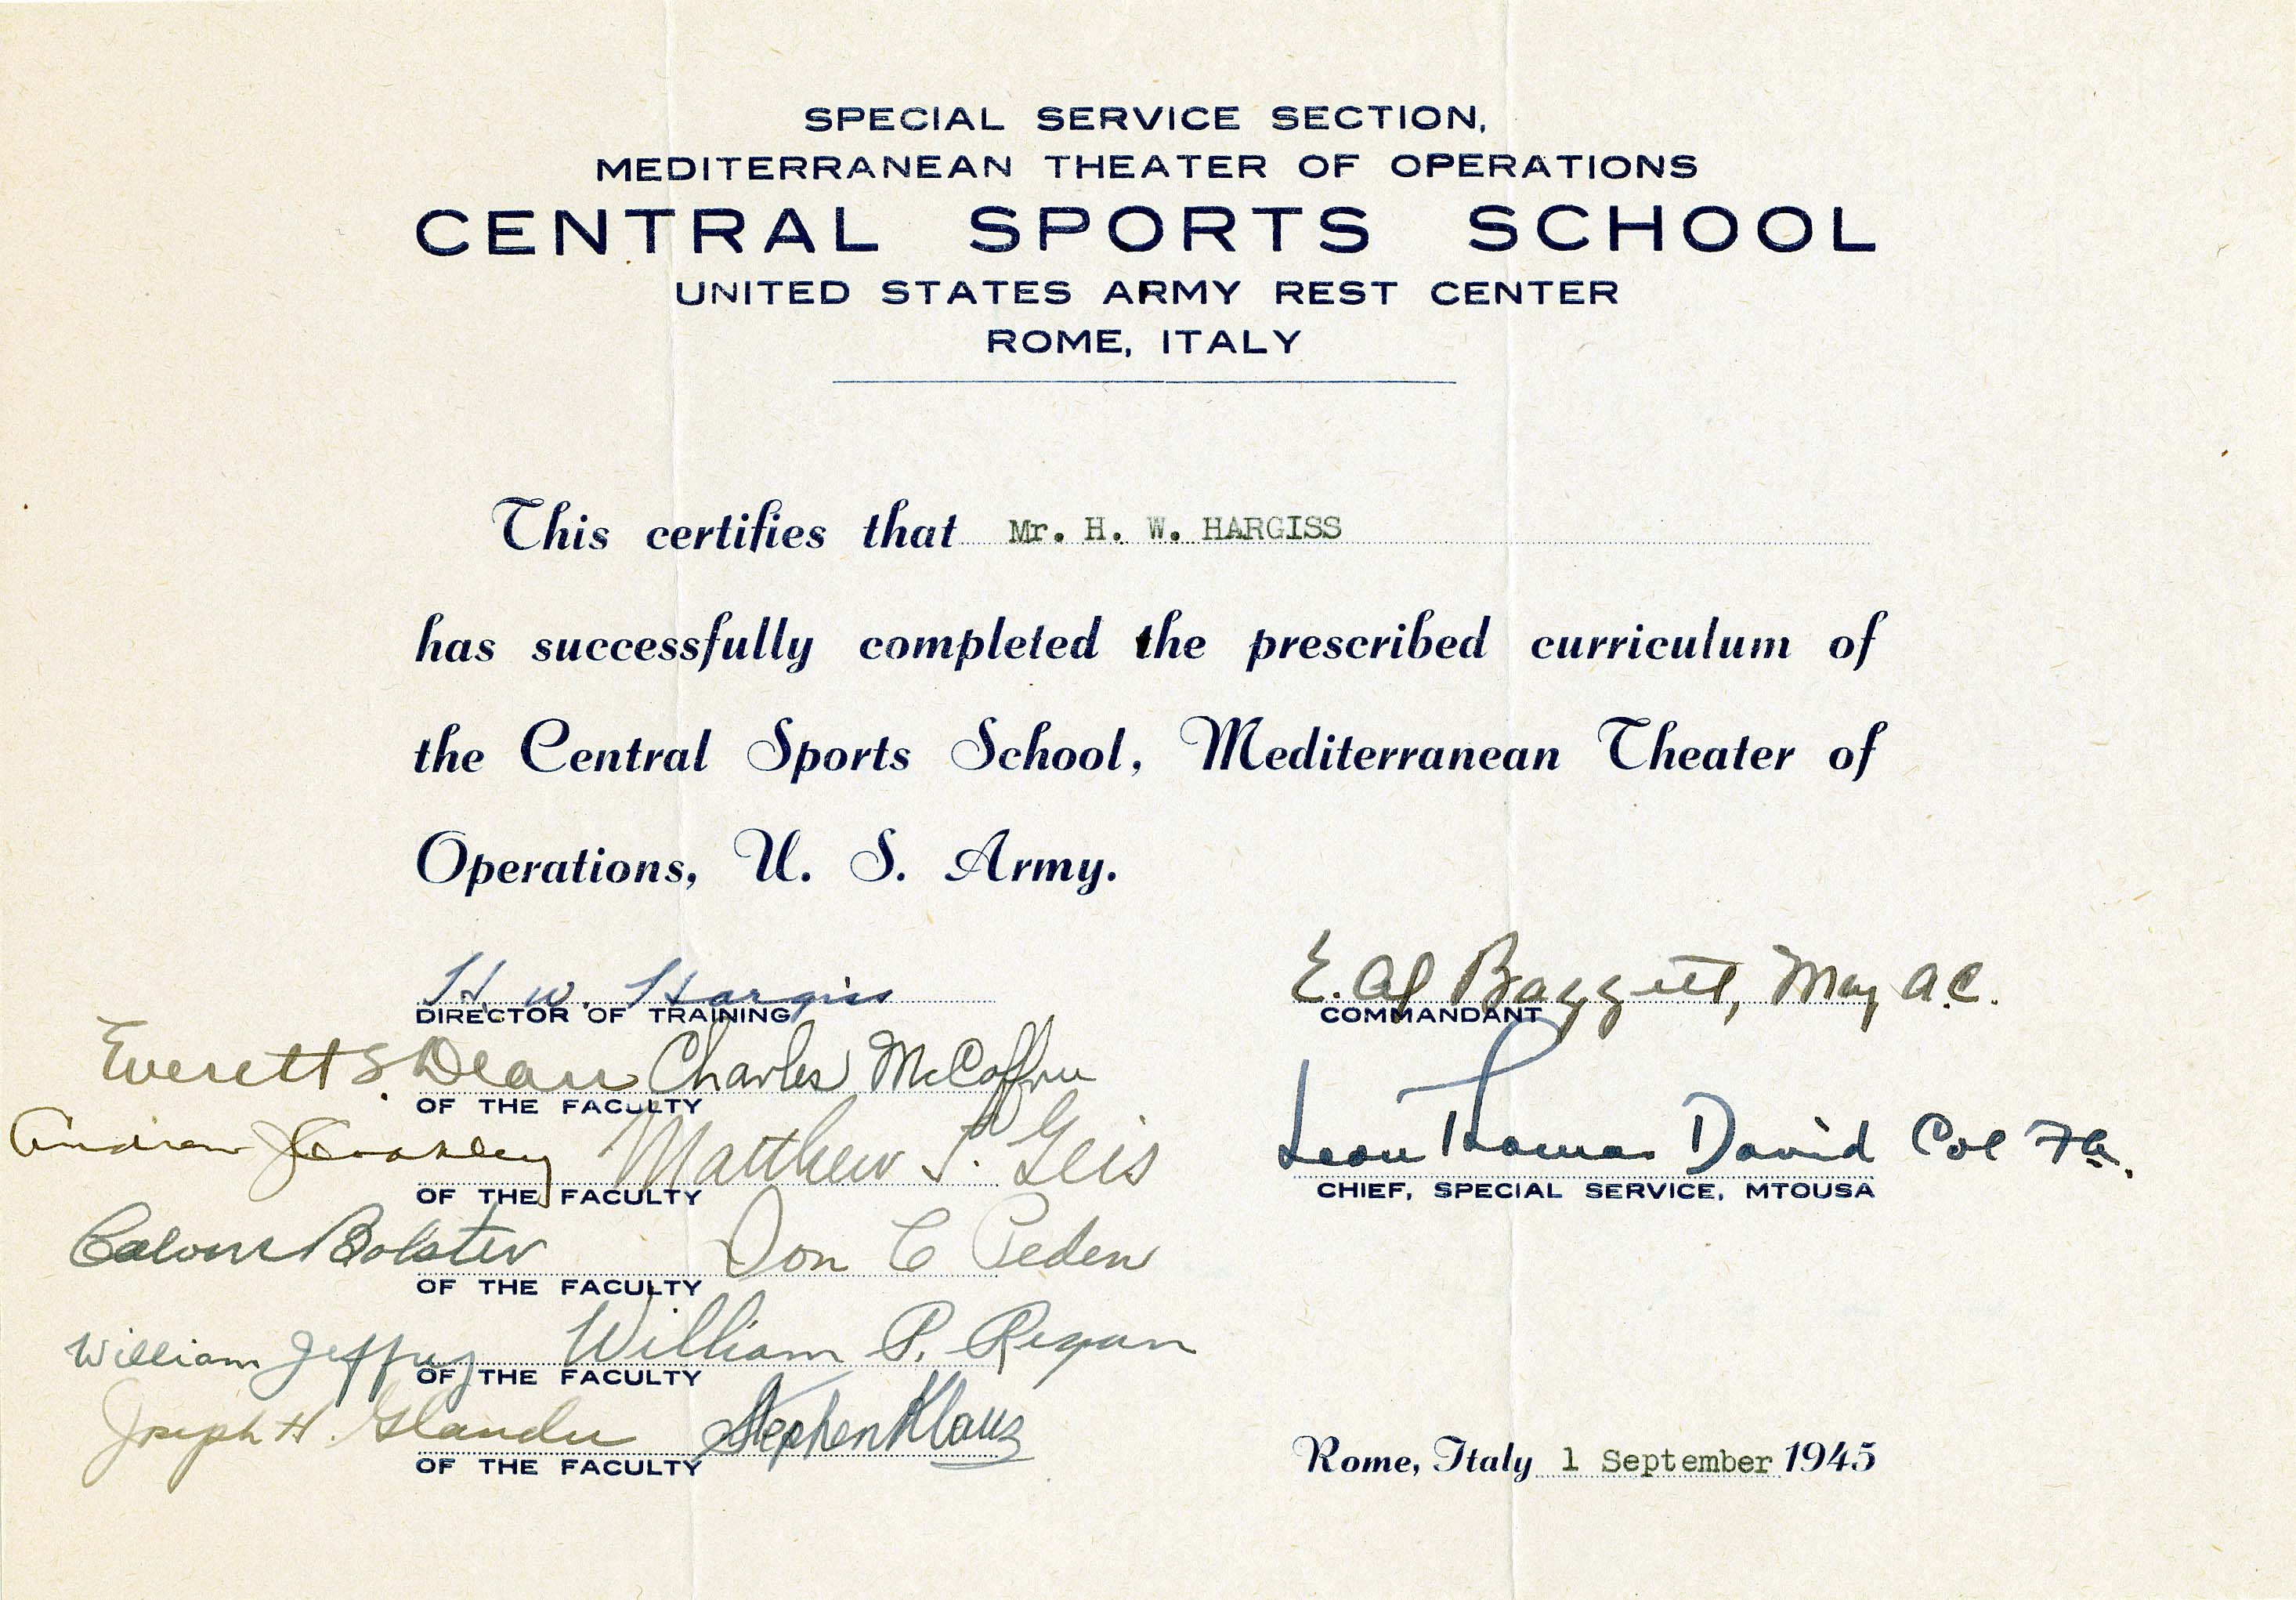 SPECIAL SERVICE SECTION,
MEDITERRANEAN THEATER OF OPERATIONS
CENTRAL SPORTS SCHOOL
UNITED STATES ARMY REST CENTER
ROME, ITALY
This certifies that Mr. H. W. HARGISS
has successfully completed the prescribed curriculum of
the Central Sports School, Mediterranean Theater of
Operations, U. S. Army.
H. W. Hargiss
DIRECTOR OF TRAINING
E. Al Baggett, Maj A.C.
COMMANDANT
Everett S. Dean Charles
OF THE FACULTY
Andrew J Coakley Matthew T. Geis
OF THE FACULTY
Leon Thomas David Col FA.
CHIEF, SPECIAL SERVICE, MTOUSA
Calvin Bolster Don C Peden
OF THE FACULTY
William Jeffrey William P. Regan
OF THE FACULTY
Joseph H. Glander Stephen Klaus
OF THE FACULTY
Rome, Italy 1 September 1945